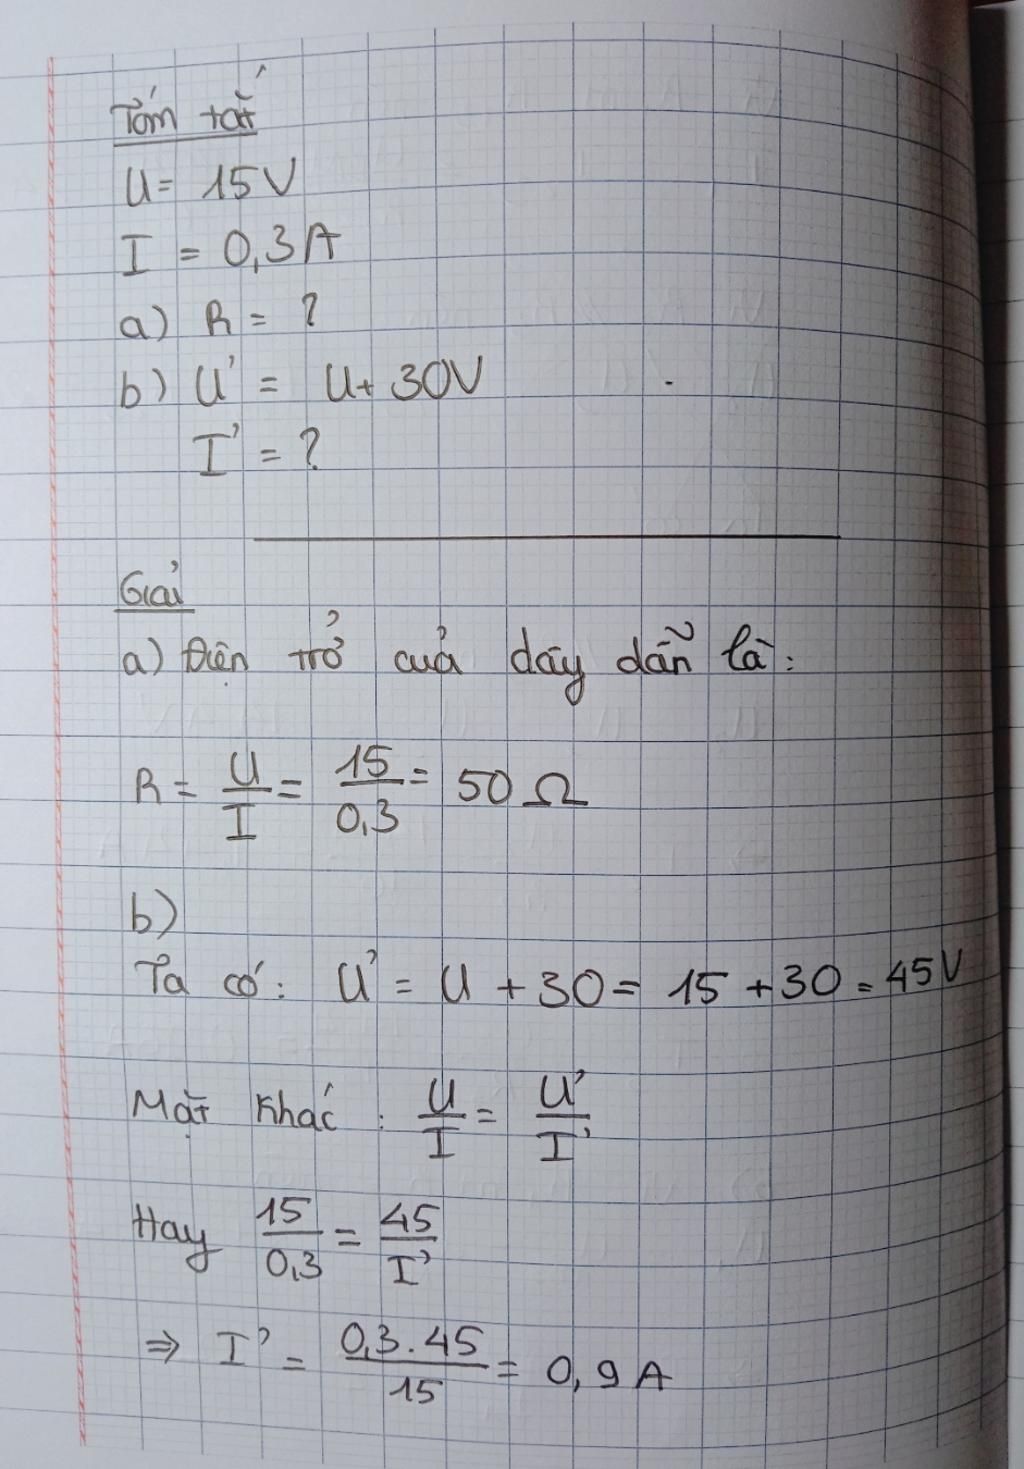 Tóm tắt
U = 15V
I = 0,3A
a) R = ?
b) U' = U + 30V
I' = ?
Giải
a) Điện trở của dây dẫn là:
R = U/I = 15/0,3 = 50 Ω
b)
Ta có: U' = U + 30 = 15 + 30 = 45V
Mặt khác: U/I = U'/I'
Hay 15/0,3 = 45/I'
⇒ I' = 0,3.45/15 = 0,9A